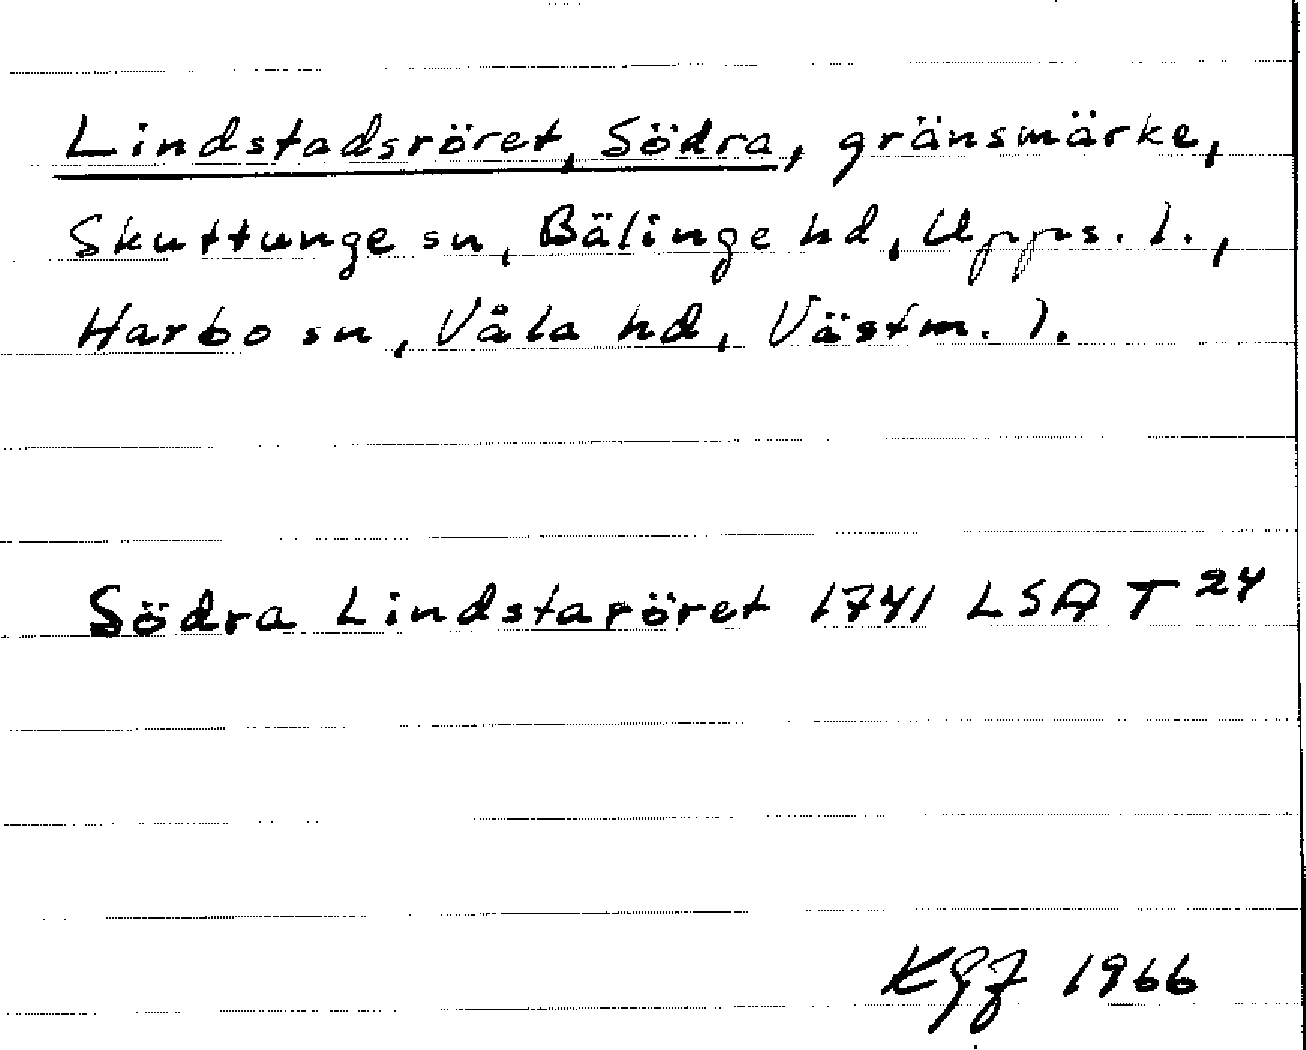 Lindstadsröret, Södra, gränsmärke,
Skuttunge sn, Bälinge hd, Upps. l.,
Harbo sn, Våla hd, Västm. l.
Södra Lindstaröret 1741 LSA T 24
1966